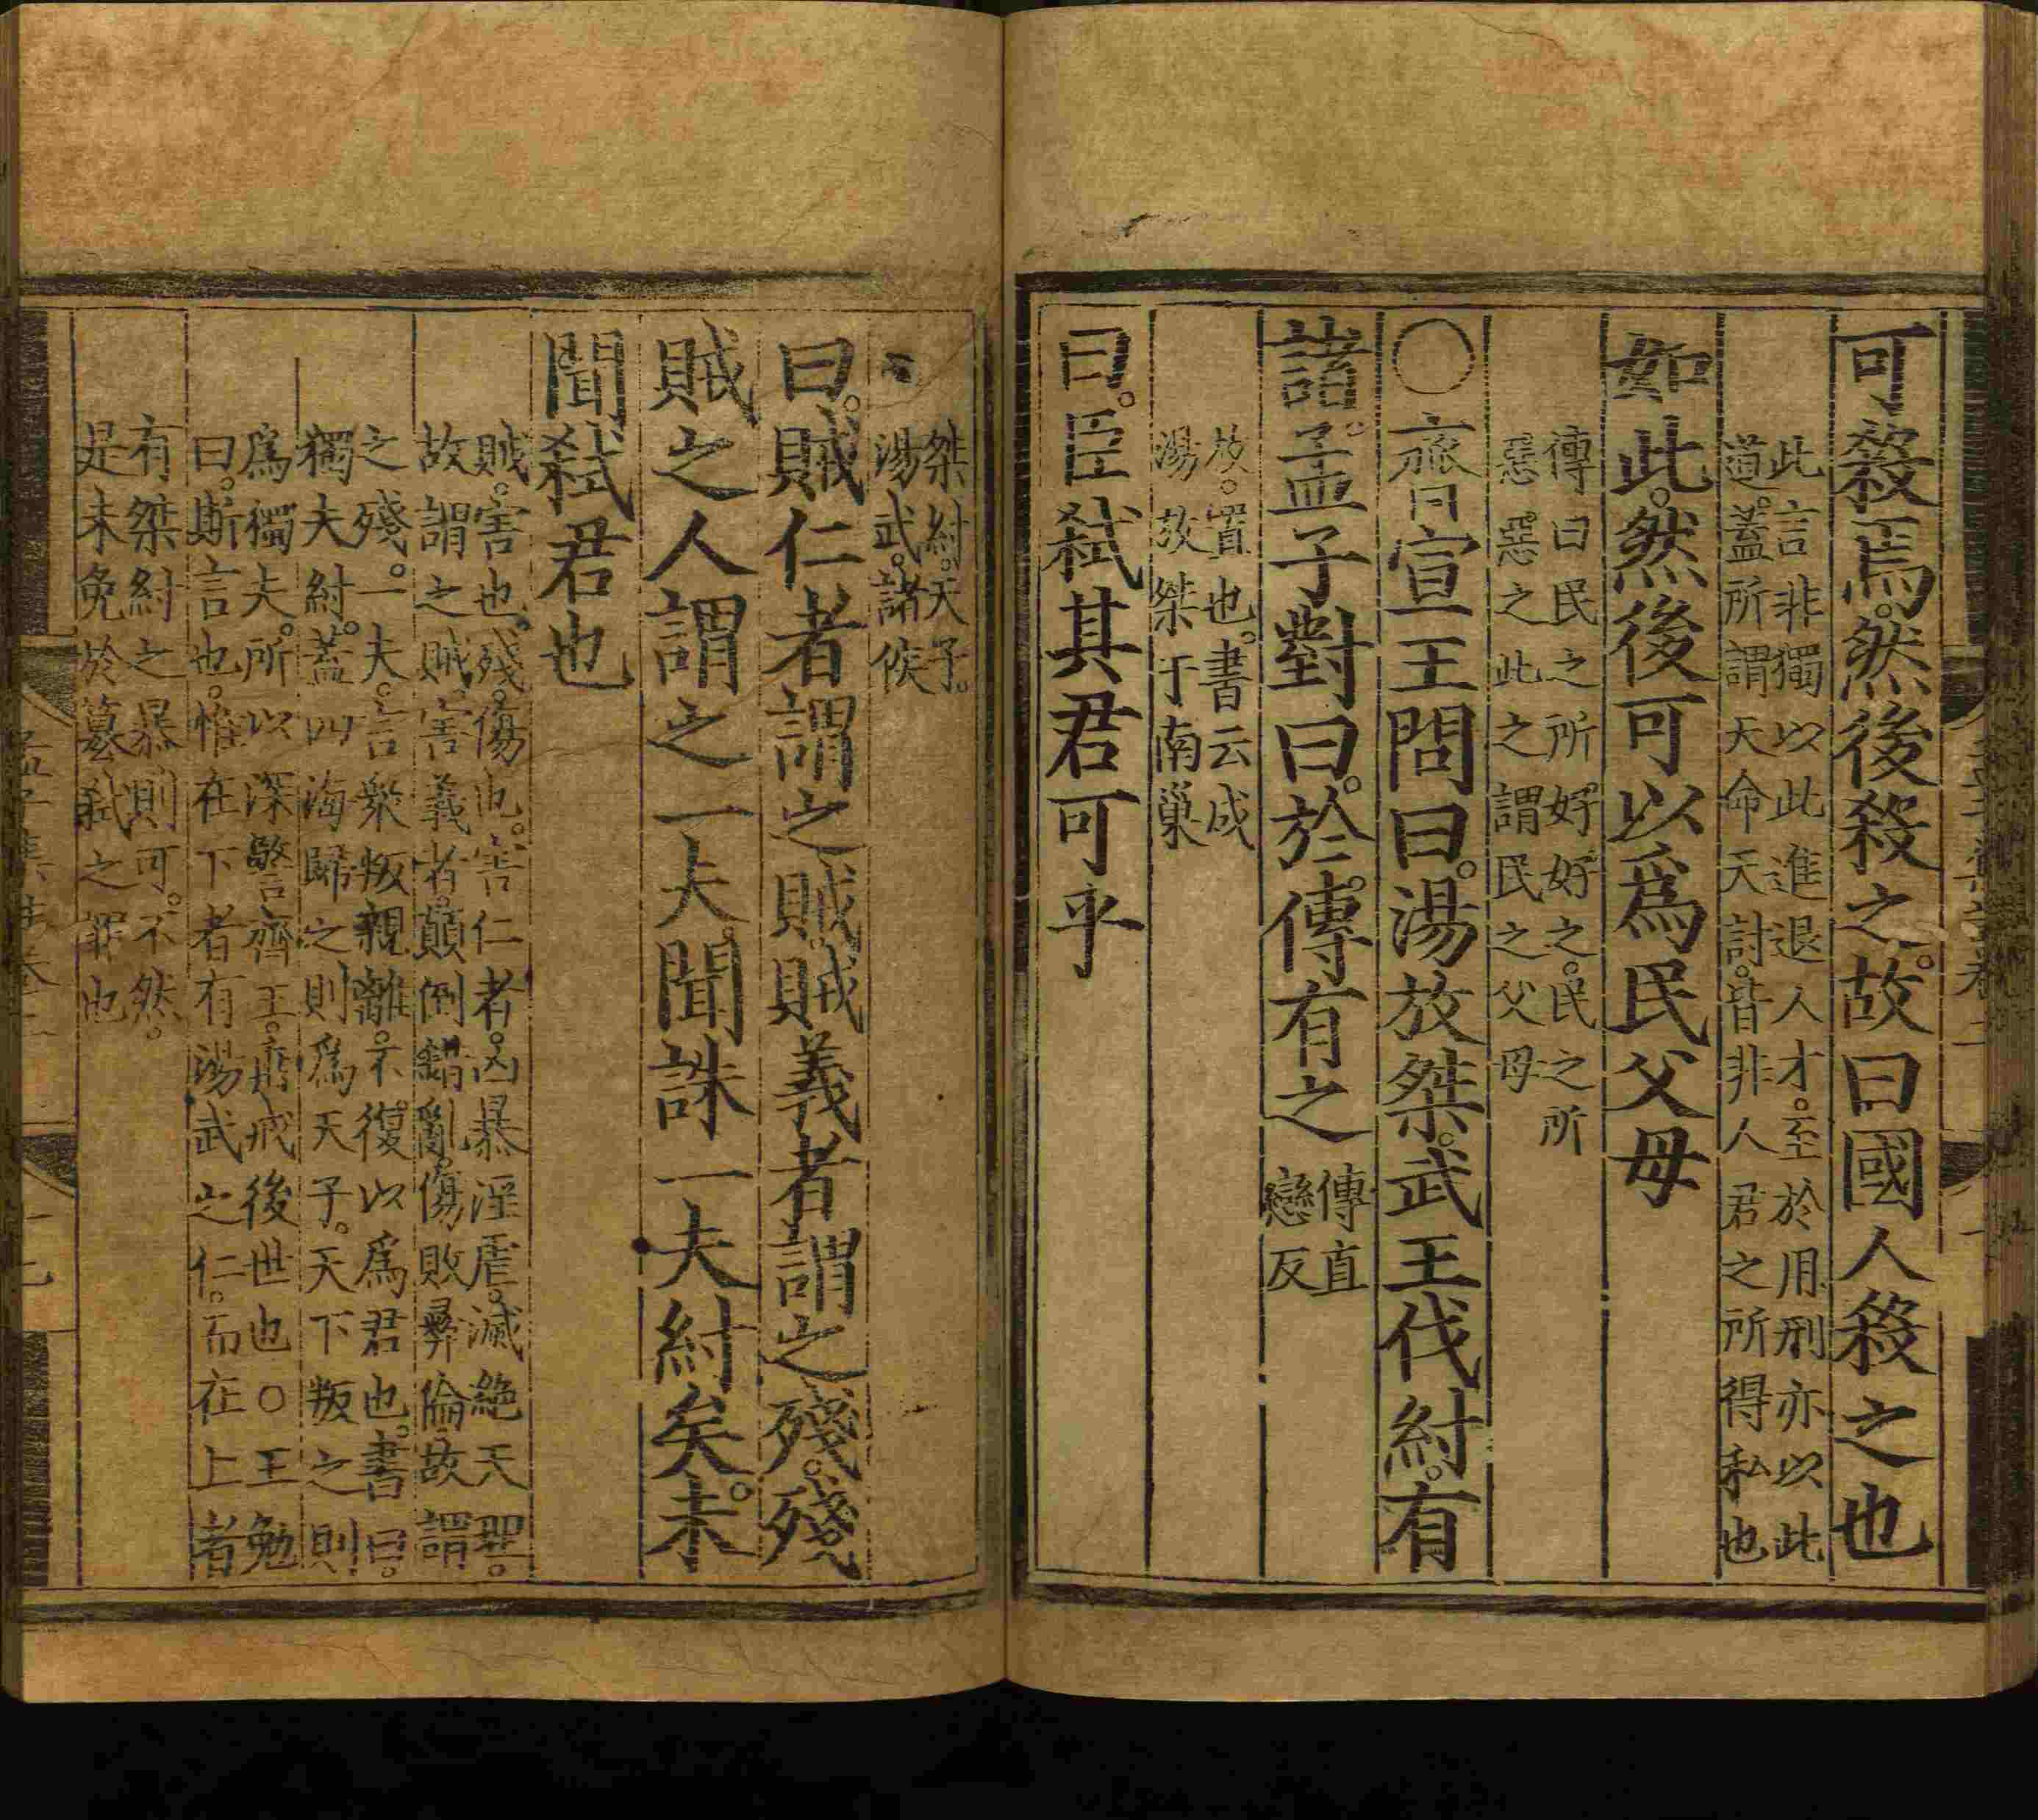 可殺焉。然後殺之。故曰國人殺之也
此言非獨以此進退人才。至於用刑亦以此
道。蓋所謂天命天討。皆非人君之所得私也
如此。然後可以爲民父母
傳曰民之所好好之。民之所
惡惡之此之謂民之父母
○齊宣王問曰。湯放桀。武王伐紂。有
諸。孟子對曰。於傳有之
傳直
戀反
放。置也。書云成
湯放桀于南巢
曰。臣弑其君可乎
桀紂。天子。
湯武。諸侯
曰。賊仁者謂之賊賊義者謂之殘。殘
賊之人謂之一夫。聞誅一夫紂矣。未
聞弑君也
賊。害也。殘。傷也。害仁者。凶暴淫虐。滅絶天理。
故謂之賊害義者。顛倒錯亂。傷敗彝倫。故謂
之殘。一夫。言衆叛親離。不復以爲君也。書曰。
獨夫紂。蓋四海歸之則爲天子。天下叛之則
爲獨夫。所以深警齊王。垂戒後世也○王勉
曰。斯言也。惟在下者有湯武之仁。而在上者
有桀紂之暴則可。不然。
是未免於篡弑之罪也